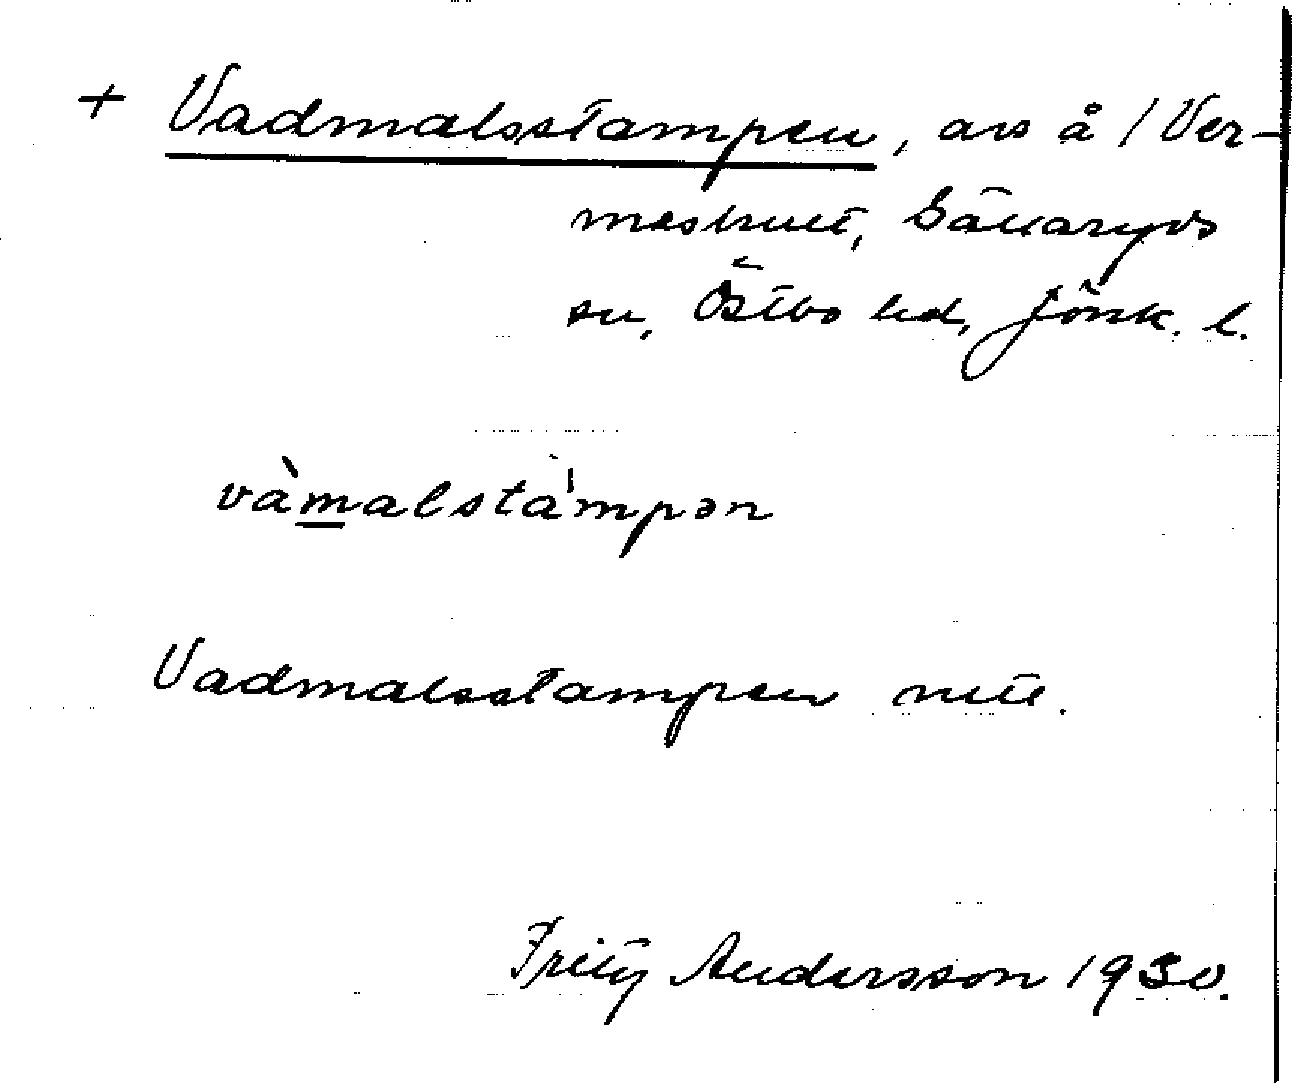 + Vadmalsstampen, avs å 1 Ver-
meshult, Gällaryds
sn, Östbo hd, Jönk. l.
vàmalstàmpən
Vadmalsstampen
Fritz Andersson 1930.